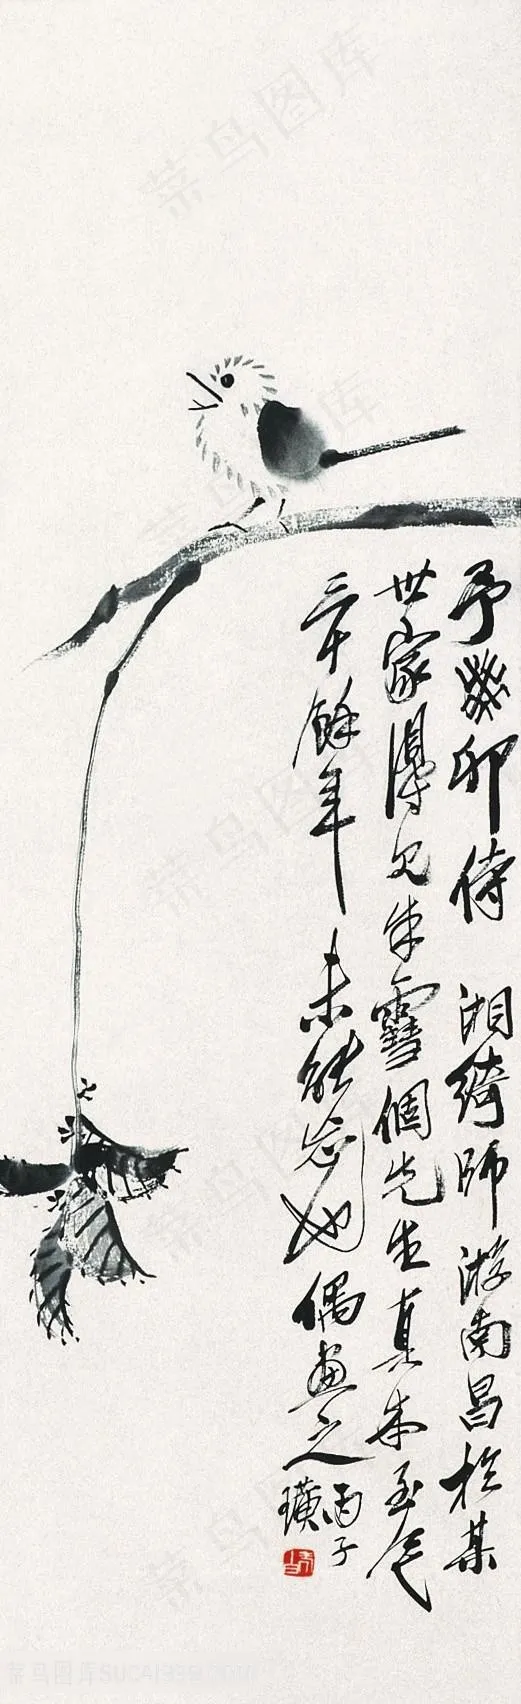 予癸卯侍 湘綺師游南昌於某
世家得見朱雪個先生真本至今
三十餘年未能忘也偶畫之
丙子
璜
菜鸟图库
菜鸟图库SUCAI999.COM